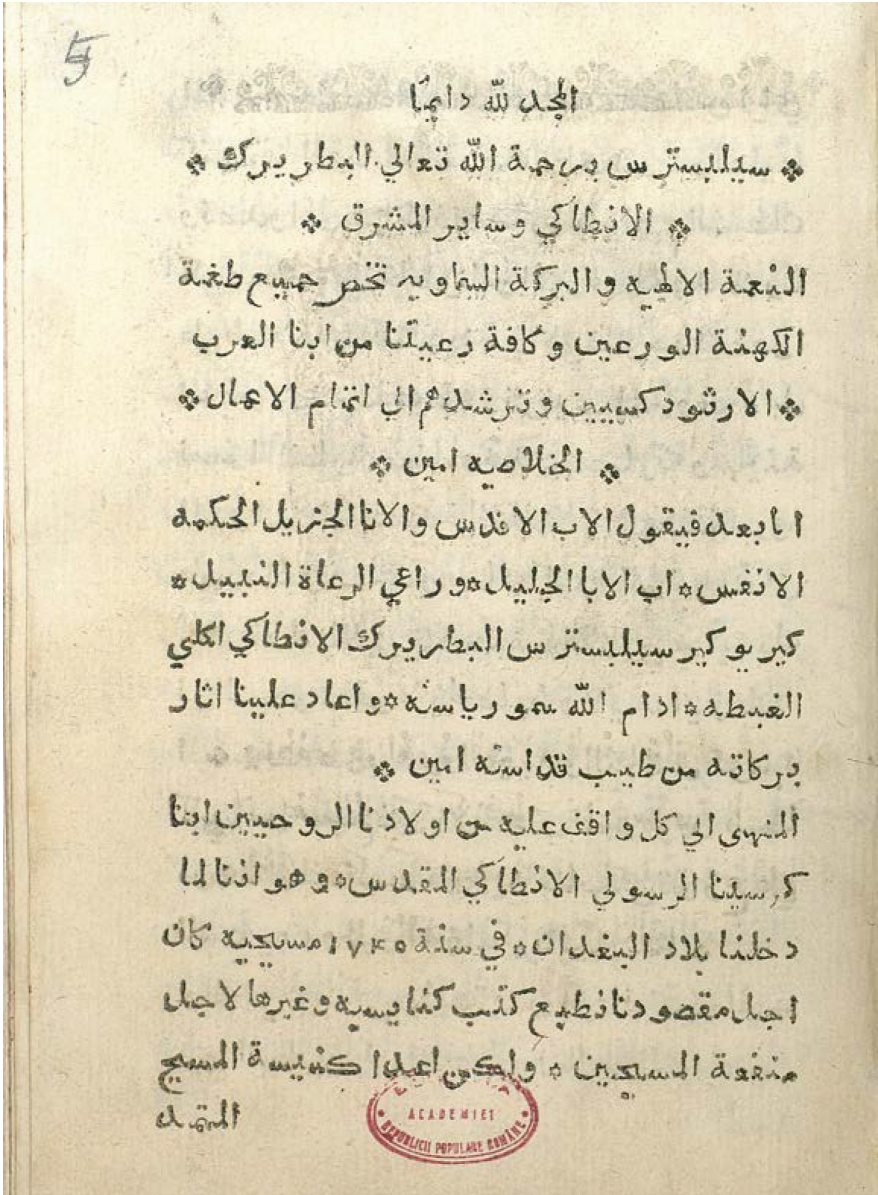 5
المجد لله دايمًا
سيلبسترس برحمة الله تعالي البطريرك
الانطاكي وساير المشرق
النعمة الالهيه والبركة السماويه تخص جميع طغمة
الكهنة الورعين وكافة رعيتنا من ابنا العرب
الارثودكسيين وترشدهم الي اتمام الاعمال
الخلاصيه امين
اما بعد فيقول الاب الاقدس والانا الجزيل الحكمه
الانفس ۞ اب الابا الجليل ۞ وراعي الرعاة النبيل ۞
كيريو كير سيلبسترس البطريرك الانطاكي الكلي
الغبطه ۞ ادام الله سمو رياسته ۞ واعاد علينا اثار
بركاته من طيب قداسته امين
المنهى الي كل واقف عليه من اولادنا الروحيين ابنا
كرسينا الرسولي الانطاكي المقدس ۞ وهو اننا لما
دخلنا بلاد البغدان ۞ في سنة ١٧٤٥ مسيحيه كان
اجل مقصودنا نطبع كتب كنايسيه وغيرها لاجل
منفعة المسيحيين ۞ ولكن اعدا كنيسة المسيح
المتمد
ACADEMIEI
REPUBLICII POPULARE ROMÂNE